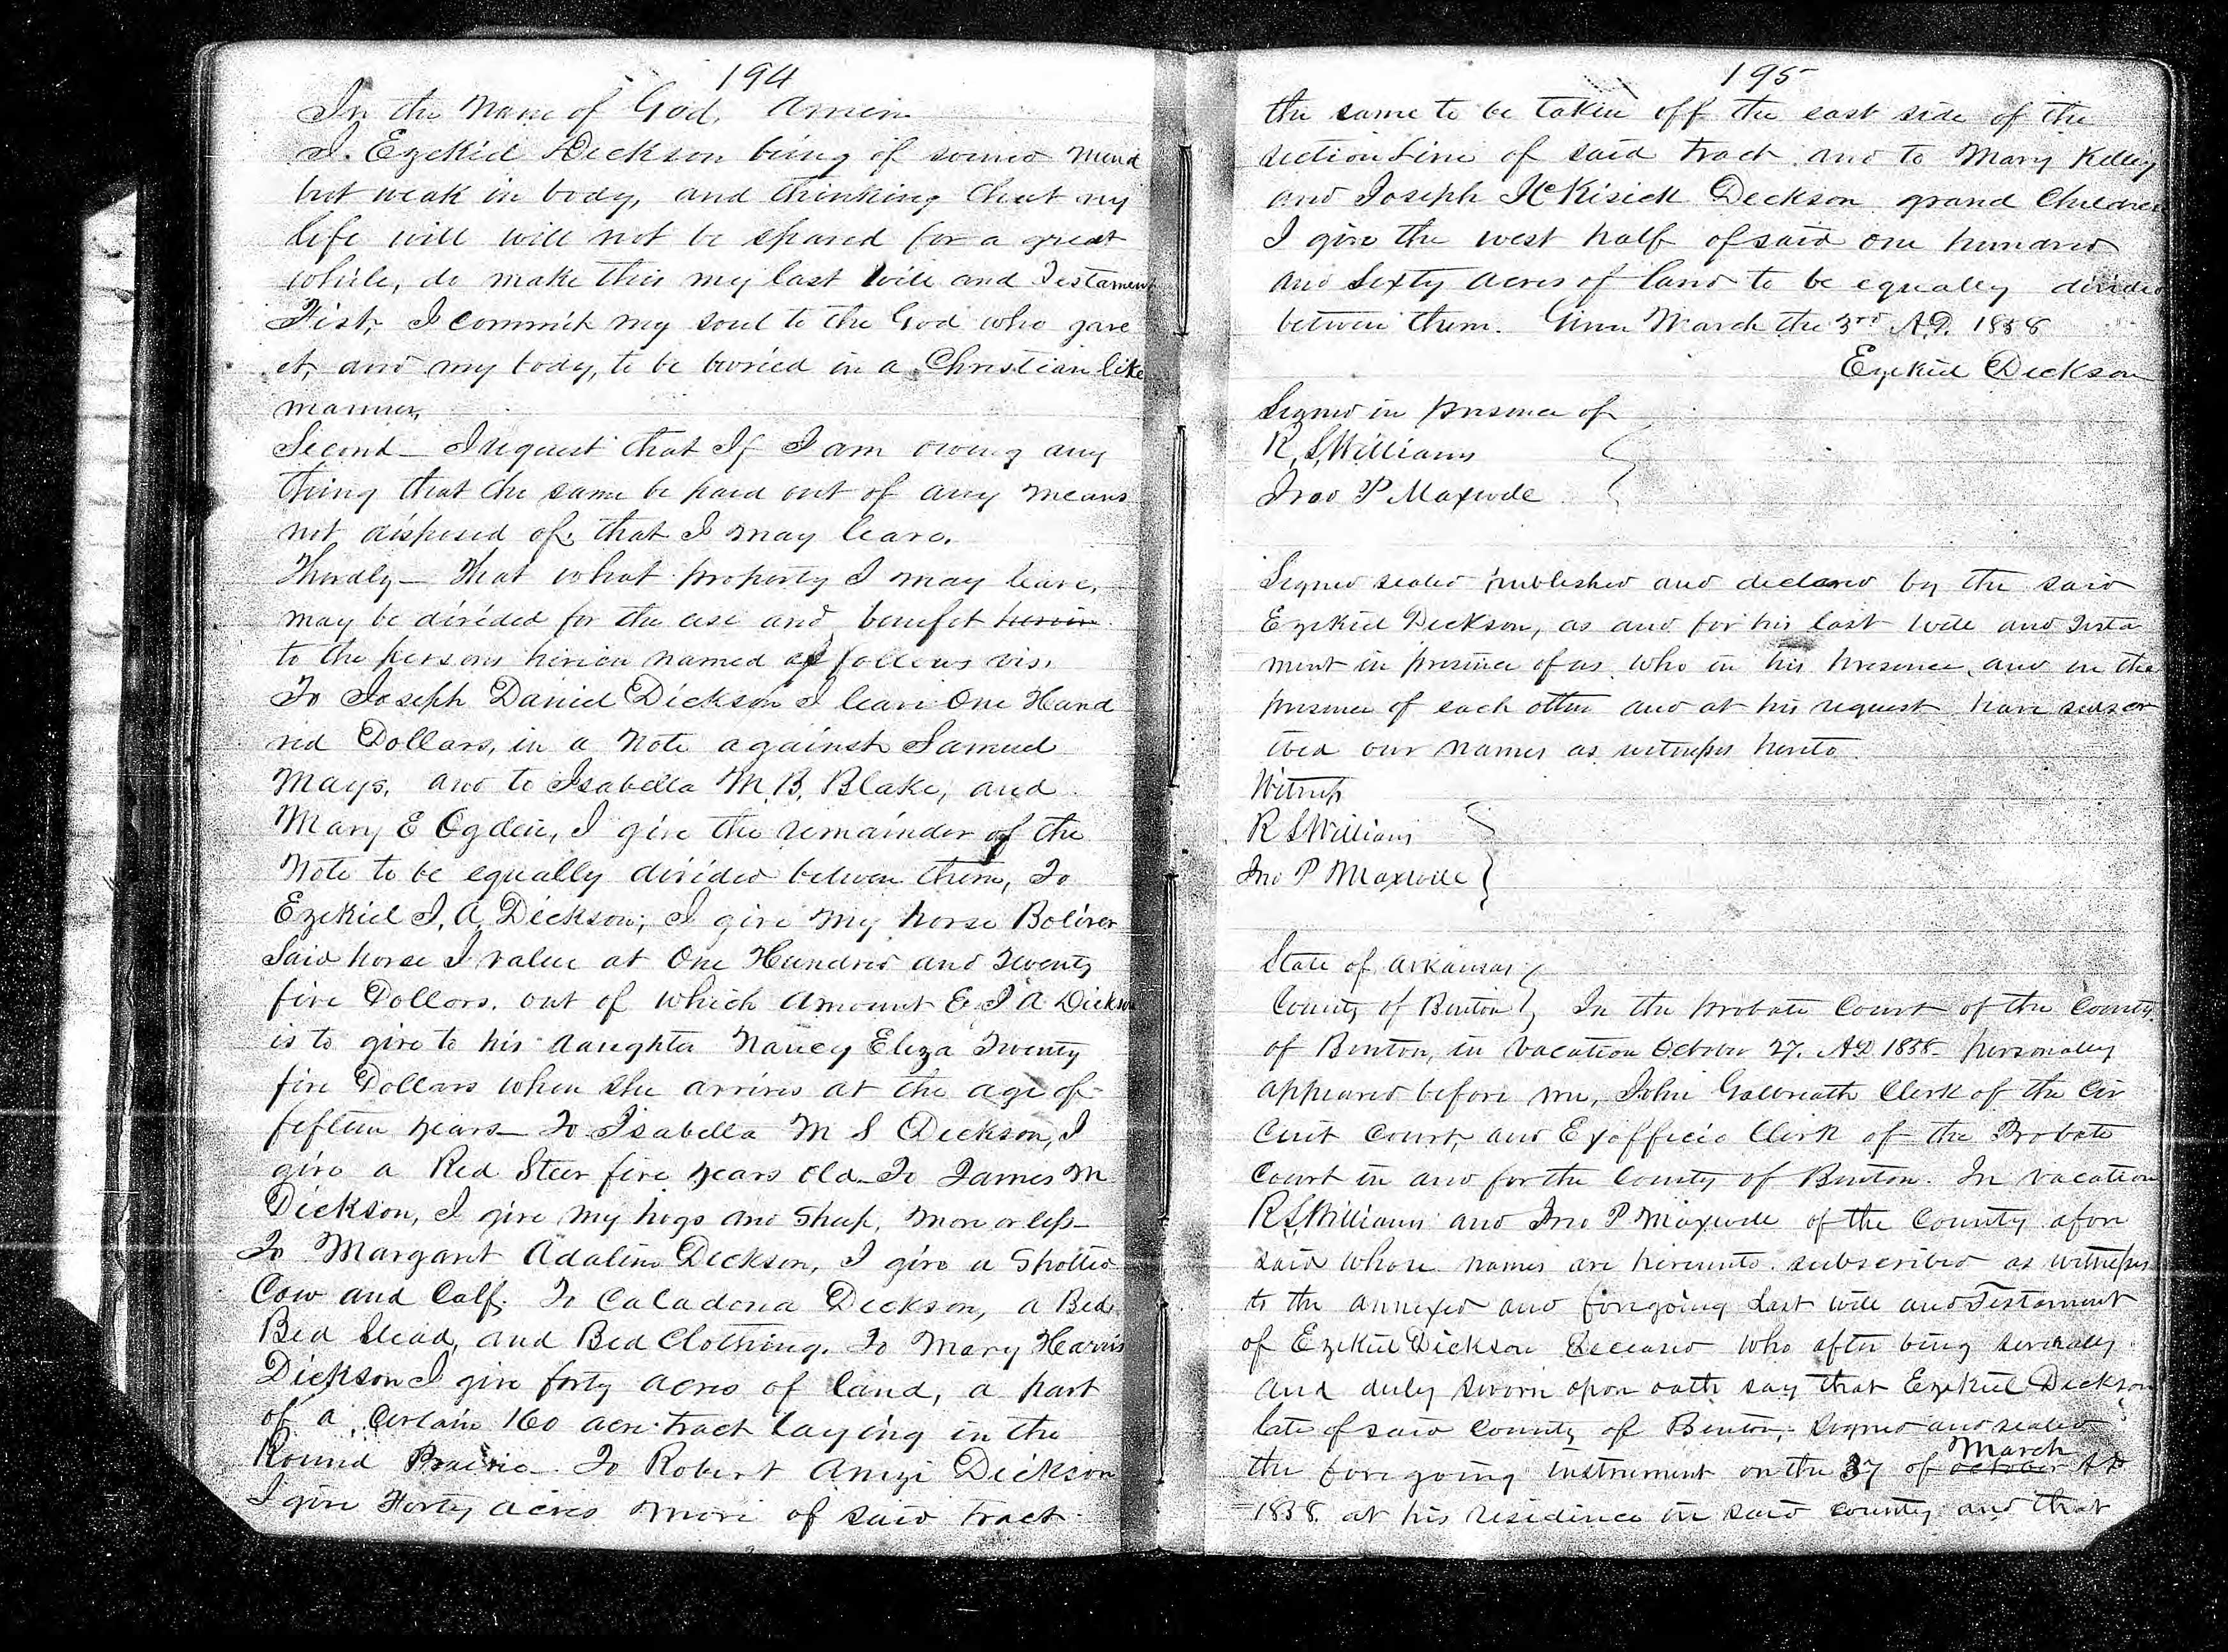 194
In the Name of God, Amen
I. Ezekiel Dickson being of sound Mind
but weak in body, and thinking that my
life will will not be spared for a great
while, do make this my last Will and Testament
Fist, I commit my soul to the God who gave
it, and my body, to be buried in a Christian like
manner,
Second — I request that If I am owing any
thing that the same be paid out of any means
not disposed of, that I may leave.
Thirdly — That what property I may leave,
may be divided for the use and benefit herein
to the persons herein named as follows vis,
To Joseph Daniel Dickson I leave One Hund
red Dollars, in a Note against Samuel
Mays, and to Isabella M. B. Blake, and
Mary E Ogden, I give the remainder of the
Note to be equally divided between them, To
Ezekiel J. A. Dickson; I give my horse Boliver
Said horse I value at One Hundred and Twenty
five Dollars. out of which Amount E J A Dickson
is to give to his daughter Nancy Eliza Twenty
five Dollars when she arrives at the age of
fifteen years — To Isabella M S Dickson, I
give a Red Steer five years old — To James M
Dickson, I give my hogs and Sheep, more or less —
To Margaret Adaline Dickson, I give a Spotted
Cow and Calf. To Caladona Dickson, a Bed
Bed Stead, and Bed Clothing. To Mary Harris
Dickson I give forty acres of land, a part
of a certain 160 acre tract laying in the
Round Prairie — To Robert Amzi Dickson
I give Forty acres more of said tract
195
the same to be taken off the east side of the
section Line of said tract. and to Mary Kelley
and Joseph McKisick Dickson grand Children
I give the west half of said one hundred
and Sixty acres of land to be equally divided
between them. Given March the 3rd A.D. 1858
Ezekiel Dickson
Signed in presence of
R. S. Williams
Jno P Maxwell
Signed sealed published and declared by the said
Ezekiel Dickson, as and for his last Will and Testa
ment in presence of us, who in his presence, and in the
presence of each other and at his request have suscr
ibed our names as witness hereto.
Witness
R S Williams
Jno P Maxwell
State of Arkansas
County of Benton In the Probate Court of the County
of Benton, in vacation October 27. AD 1858. personally
appeared before me, John Galbreath Clerk of the Cir
cuit Court, and Exofficio Clerk of the Probate
Court in and for the County of Benton. In vacation
R. S. Williams and Jno P Maxwell of the County afore
said whose names are hereunto subscribed as witnesses
to the annexed and foregoing last will and Testament
of Ezekiel Dickson Deceased who after being severally
and duly sworn upon oath say that Ezekiel Dickson
late of said County of Benton, signed and sealed
March
the foregoing instrument on the 37 of October AD
1858. at his residence in said county and that